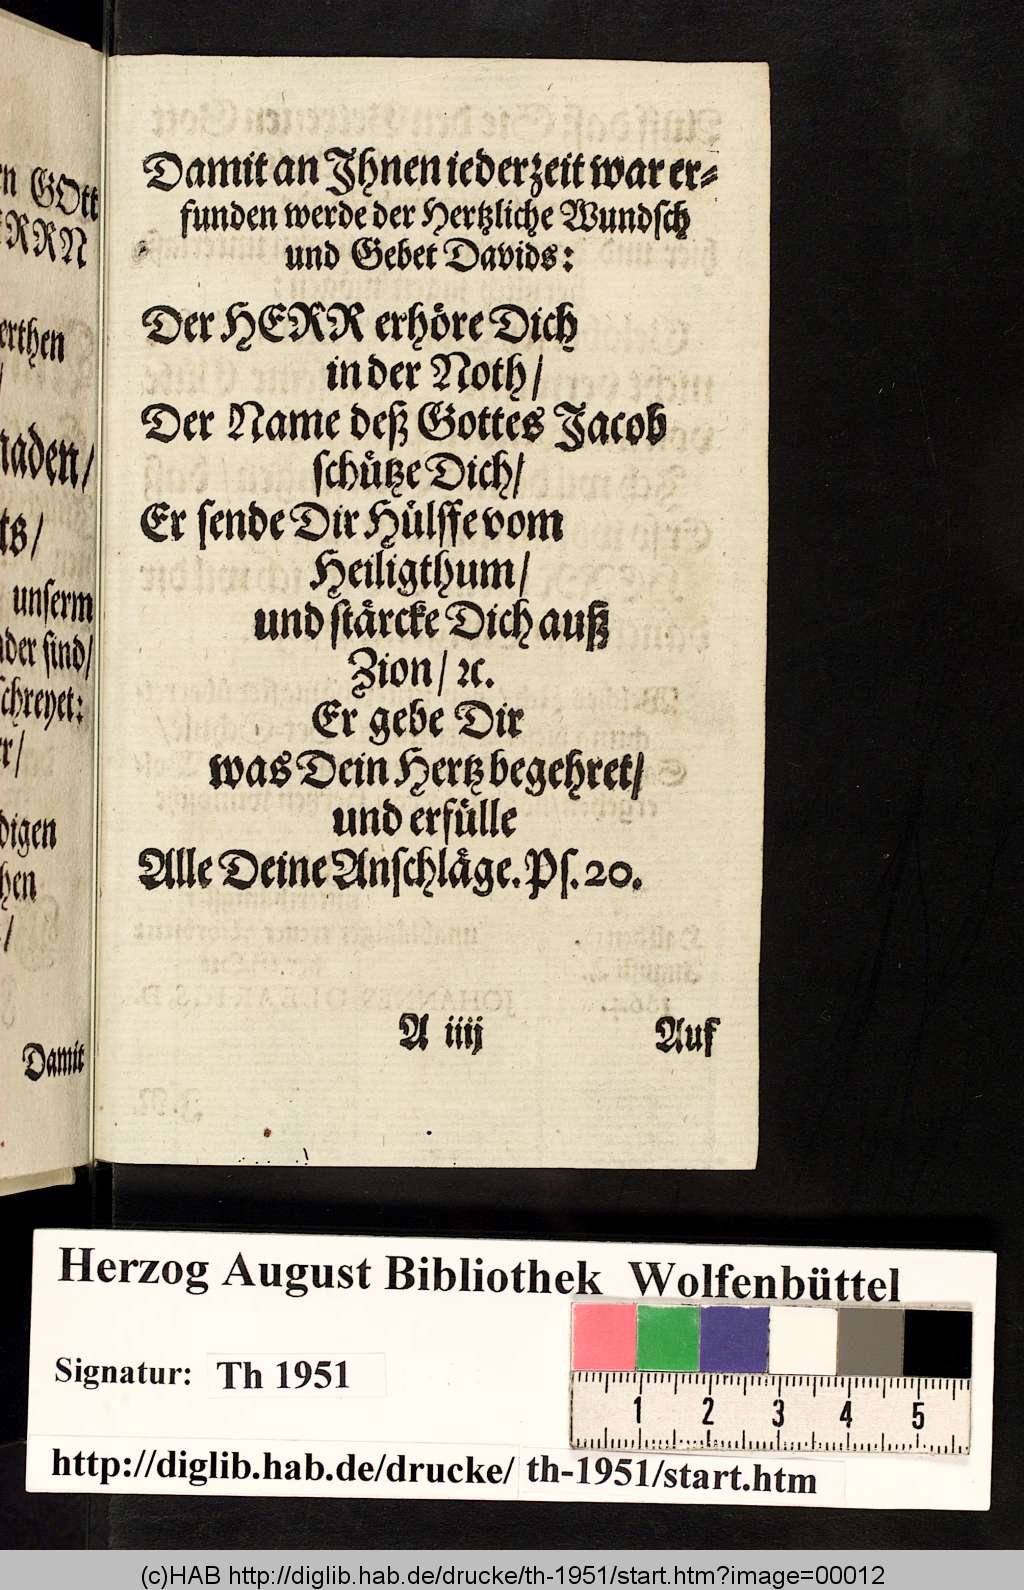 GOtt
RRN
erthen
naden/
ts/
unserm
nder sind/
schreyet:
er/
digen
hen
/
Damit
Damit an Ihnen iederzeit war er-
funden werde der Hertzliche Wundsch
und Gebet Davids:
Der HERR erhöre Dich
in der Noth/
Der Name deß Gottes Jacob
schütze Dich/
Er sende Dir Hülffe vom
Heiligthum/
und stärcke Dich auß
Zion/ ꝛc.
Er gebe Dir
was Dein Hertz begehret/
und erfülle
Alle Deine Anschläge. Ps. 20.
A iiij Auf
Herzog August Bibliothek Wolfenbüttel
Signatur: Th 1951
1 2 3 4 5
http://diglib.hab.de/drucke/ th-1951/start.htm
(c)HAB http://diglib.hab.de/drucke/th-1951/start.htm?image=00012